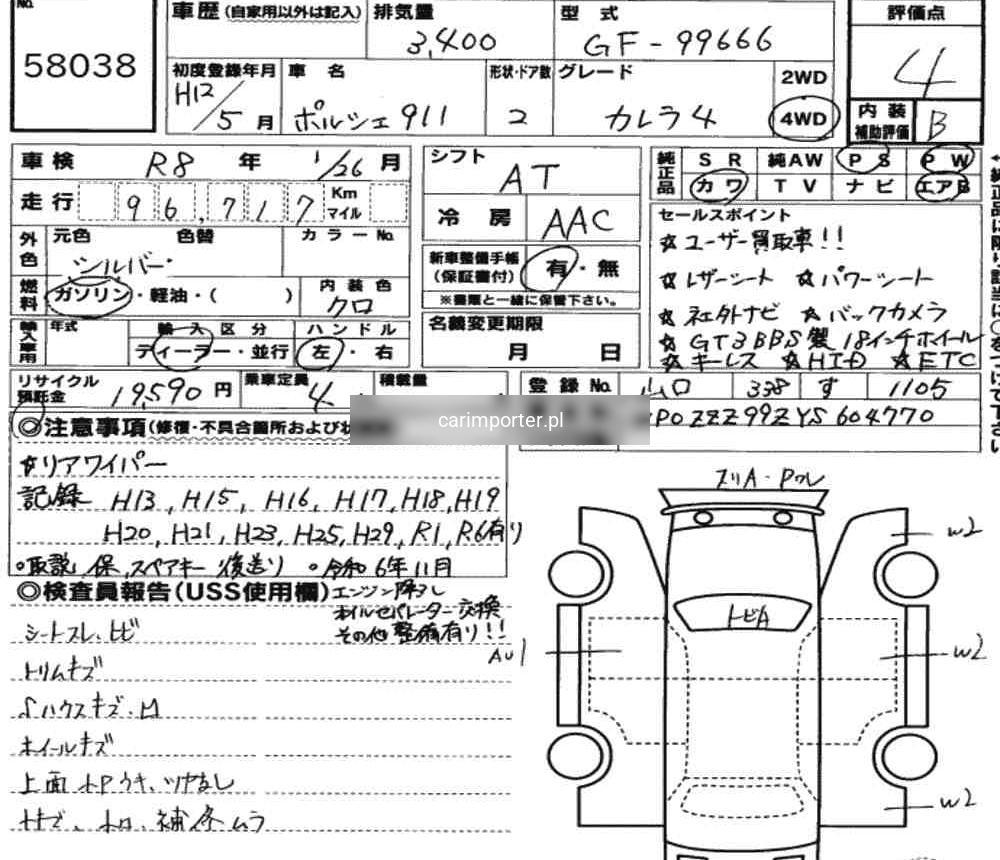 No.
58038
車歴 (自家用以外は記入) 排気量 型式 評価点
3,400 GF-99666 4
初度登録年月 車名 形状・ドア数 グレード 2WD
H12/5月 ポルシェ911 2 カレラ4 4WD
内装補助評価 B
車検 R8年 1/26月
シフト AT
純正品 SR 純AW PS PW
カワ TV ナビ エアB
走行 96,717 Km マイル
冷房 AAC
セールスポイント
☆ユーザー買取車!!
外色 元色 色替 カラーNo.
シルバー
新車整備手帳(保証書付) 有・無
☆レザーシート ☆パワーシート
燃料 ガソリン・軽油・( ) 内装色 クロ
※書類と一緒に保管下さい。
☆社外ナビ ☆バックカメラ
輸入車用 年式 輸入区分 ハンドル
ディーラー・並行 左・右
名義変更期限
月 日
☆GT3BBS製18インチホイール
☆キーレス ☆HID ☆ETC
リサイクル預託金 19,590円 乗車定員 4 積載量
登録No. 山口 338 す 1105
carimporter.pl
WP0ZZZ99ZYS604770
◎注意事項(修復・不具合箇所および状
☆リアワイパー
記録 H13, H15, H16, H17, H18, H19
H20, H21, H23, H25, H29, R1, R6有り
○取説、保、スペアキー後送り ○令和6年11月
エンジン降ろし
オイルセパレーター交換
その他整備有り!!
◎検査員報告(USS使用欄)
シートスレ、トビ
トリムキズ
ハウスキズ・凹
ホイールキズ
上面
補修ムラ
スリA・Pワレ
トビA
W2
AU1
W2
W2